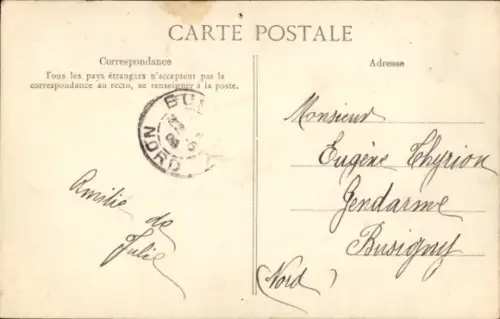 CARTE POSTALE
Correspondance
Tous les pays étrangers n'acceptent pas la
correspondance au recto, se renseigner à la poste.
Adresse
NORD
Amitié de
Julie
Monsieur
Eugène Thyrion
Gendarme
Busigny
(Nord)